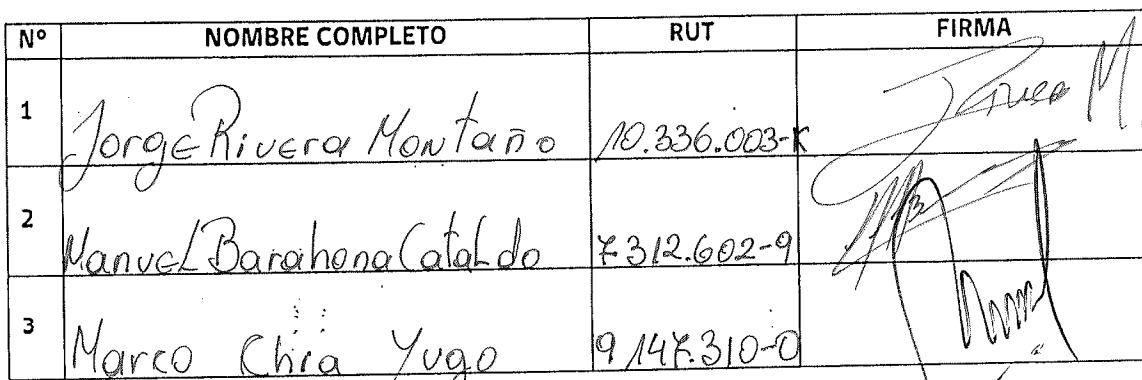 Nº NOMBRE COMPLETO RUT FIRMA
1 Jorge Rivera Montaño 10.336.003-K
2 Manuel Barahona Cataldo 7312.602-9
3 Marco Chia Yugo 9147.310-0